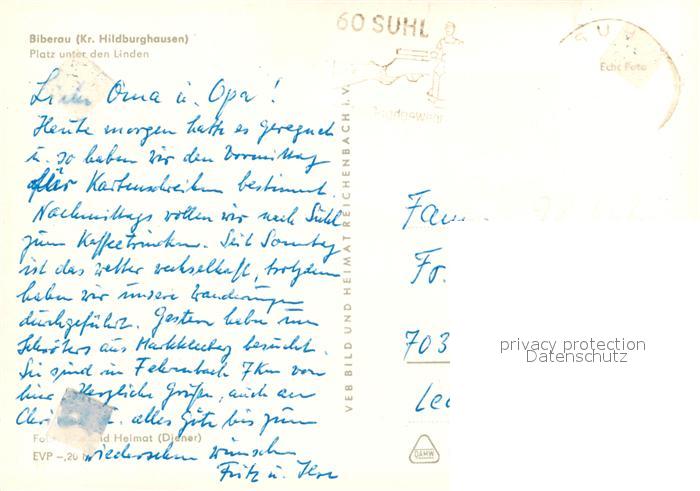 Biberau (Kr. Hildburghausen)
Platz unter den Linden
Oma u. Opa!
Heute morgen hatte es geregnet
u. so haben wir den Vormittag
für Kartenschreiben bestimmt.
Nachmittags wollen wir nach Suhl
zum Kaffeetrinken. Seit Sonntag
ist das Wetter wechselhaft, trotzdem
haben wir unsere Wanderungen
durchgeführt. Gestern haben uns
Schröters aus Markkleeberg besucht.
Sie sind in Fehrenbach 7 km von
hier. Herzliche Grüße, auch an
alles Gute bis zum
Wiedersehen wünschen
Fritz u.
Heimat (Diener)
EVP –,20
VEB BILD UND HEIMAT REICHENBACH i. V.
60 SUHL
Echt Foto
Fam
Fr.
703
Le
DAMW
privacy protection
Datenschutz